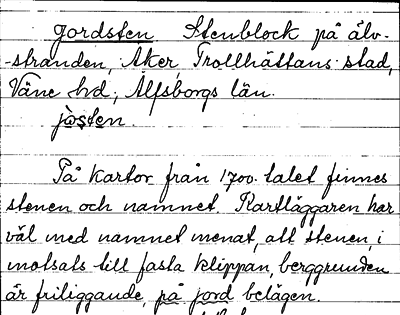 Jordsten Stenblock på älv-
-stranden, Åker, Trollhättans stad,
Väne hd., Älfsborgs län.
jòsten.
På kartor från 1700-talet finnes
stenen och namnet. Kartläggaren har
väl med namnet menat, att stenen, i
motsats till fasta klippan, berggrunden
är friliggande, på jord belägen.